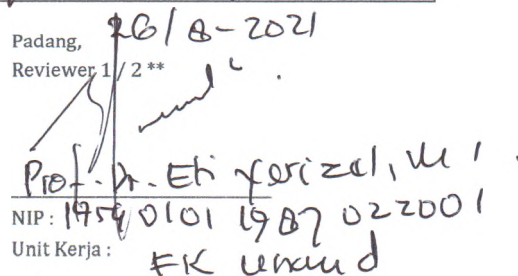 Padang, 26/8-2021
Reviewer 1 / 2 **
Prof. Dr. Eti Yerizel, MS
NIP : 1959 0101 1987 022001
Unit Kerja : FK Unand